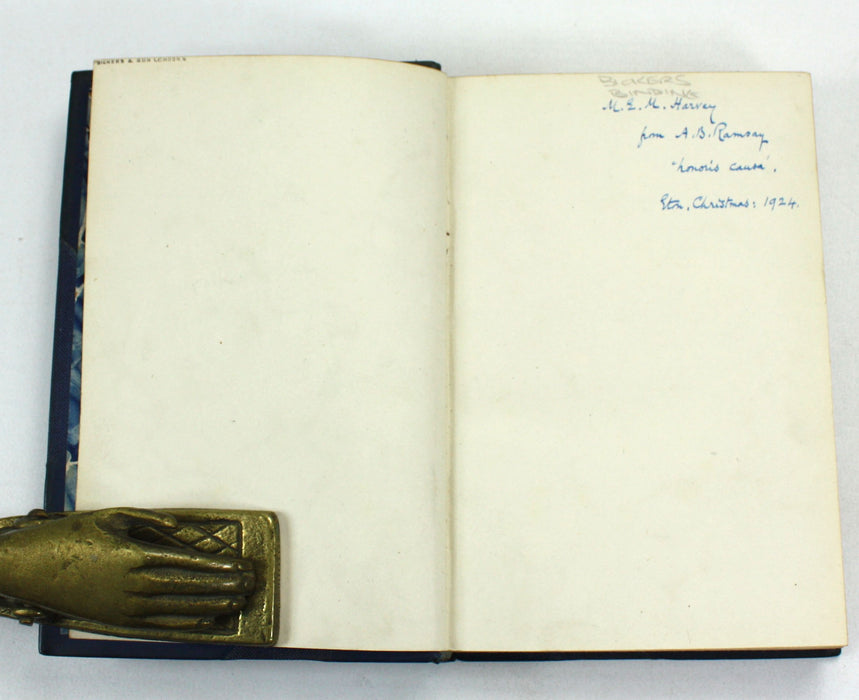 BICKERS & SON LONDON
BICKERS
BINDING
M. E. M. Harvey
from A. B. Ramsay
"honoris causa'.
Eton, Christmas: 1924.